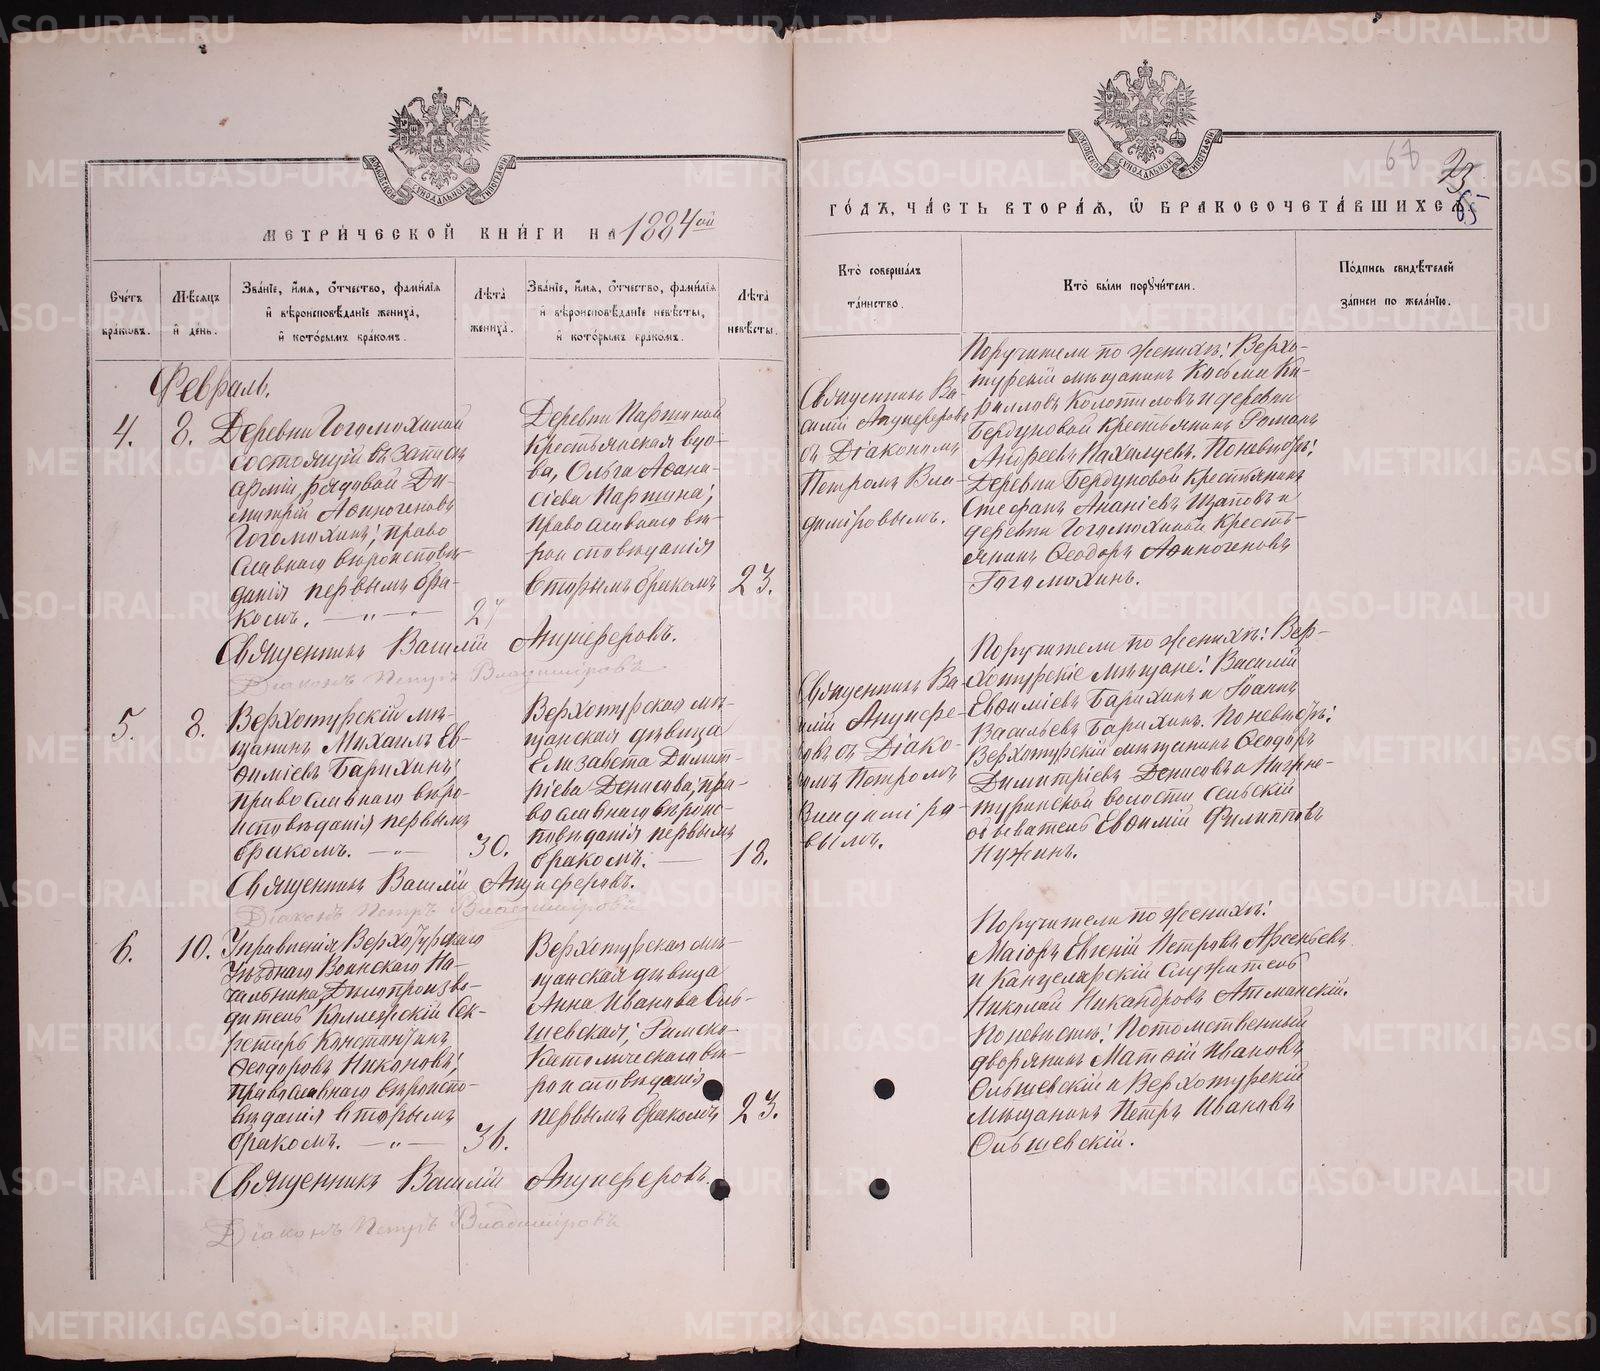 МЕТРИ́ЧЕСКОЙ КНИ́ГИ НА 1884ой
Сче́тъ бра́ковъ.
Мѣ́сяцъ и҆ де́нь.
Зва́нїе, и҆́мя, ѻ҆́тчество, фами́лїя
и҆ вѣроисповѣ́данїе жениха̀,
и҆ кото́рымъ бра́комъ.
Лѣ́та жениха̀.
Зва́нїе, и҆́мя, ѻ҆́тчество, фами́лїя
и҆ вѣроисповѣ́данїе невѣ́сты,
и҆ кото́рымъ бра́комъ.
Лѣ́та невѣ́сты.
Февраль.
4.
8.
Деревни Гогомохиной
состоящій въ запасѣ
арміи рядовой Ди-
митрій Аѳиногеновъ
Гогомохинъ; право
славнаго вѣроисповѣ-
данія первымъ бра-
комъ. — „ —
27
Деревни Паршиной
крестьянская вдо-
ва, Ольга Аѳана-
сіева Паршина;
православнаго вѣ-
роисповѣданія
вторымъ бракомъ
23.
Священникъ Василій Анциферовъ.
Діаконъ Петръ Владиміровъ
5.
8.
Верхотурскій мѣ-
щанинъ Михаилъ Ев-
ѳиміевъ Барихинъ;
православнаго вѣро-
исповѣданія первымъ
бракомъ. — „
30.
Верхотурская мѣ-
щанская дѣвица
Елизавета Димит-
ріева Денисова; пра-
вославнаго вѣроис-
повѣданія первымъ
бракомъ. —
18.
Священникъ Василій Анциферовъ.
Діаконъ Петръ Владиміровъ
6.
10.
Управленія Верхотурскаго
Уѣзднаго Воинскаго На-
чальника, Дѣлопроизво-
дитель Коллежскій Сек-
ретарь Константинъ
Ѳеодоровъ Никоновъ;
православнаго вѣроиспо-
вѣданія вторымъ
бракомъ. — „ —
36.
Верхотурская мѣ-
щанская дѣвица
Анна Иванова Оль-
шевская; Римско-
Католическаго вѣ-
роисповѣданія
первымъ бракомъ
23.
Священникъ Василій Анциферовъ.
Діаконъ Петръ Владиміровъ
23
65
ГО́ДЪ, ЧА́СТЬ ВТОРА́Я, Ѽ БРАКОСОЧЕТА́ВШИХСЯ
Кто̀ соверша́лъ та́инство.
Кто̀ бы́ли порꙋчи́тели.
По́дпись свидѣ́телей
за́писи по жела́нїю.
Священникъ Ва-
силій Анциферовъ
съ Діакономъ
Петромъ Вла-
диміровымъ.
Поручители по женихѣ: Верхо-
турскій мѣщанинъ Косьма Ки-
рилловъ Колотиловъ и деревни
Бердуновой крестьянинъ Романъ
Андреевъ Нахалцевъ. По невѣстѣ:
Деревни Бердуновой крестьянинъ
Стефанъ Ананіевъ Щаповъ и
деревни Гогомохиной кресть-
янинъ Ѳеодоръ Аѳиногеновъ
Гогомохинъ.
Священникъ Ва-
силій Анцифе-
ровъ съ Діако-
номъ Петромъ
Владиміро-
вымъ.
Поручители по женихѣ: Вер-
хотурскіе мѣщане: Василій
Евѳиміевъ Барихинъ и Іоаннъ
Васильевъ Барихинъ. По невѣстѣ:
Верхотурскій мѣщанинъ Ѳеодоръ
Димитріевъ Денисовъ и Нижне-
туринской волости сельскій
обыватель Евѳимій Филипповъ
Нужинъ.
Поручители по женихѣ:
Маіоръ Евгеній Петровъ Арсеньевъ
и Канцелярскій служитель
Николай Никандровъ Атманскій.
По невѣстѣ: Потомственный
дворянинъ Матѳій Ивановъ
Ольшевскій и Верхотурскій
мѣщанинъ Петръ Ивановъ
Ольшевскій.
METRIKI.GASO-URAL.RU